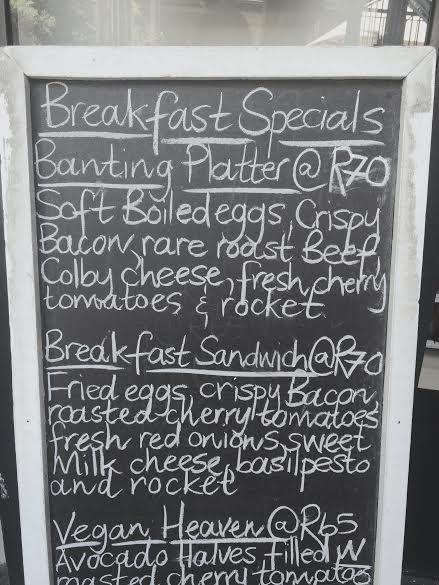 Breakfast Specials
Banting Platter @ R70
Soft Boiled eggs, Crispy
Bacon, rare roast Beef,
Colby cheese, fresh cherry
tomatoes & rocket
Breakfast Sandwich @ R70
Fried eggs, crispy Bacon,
roasted cherry tomatoes
fresh red onions, sweet
Milk cheese, basil pesto
and rocket
Vegan Heaven @ R65
Avocado Halves filled W
cherry tomatoes